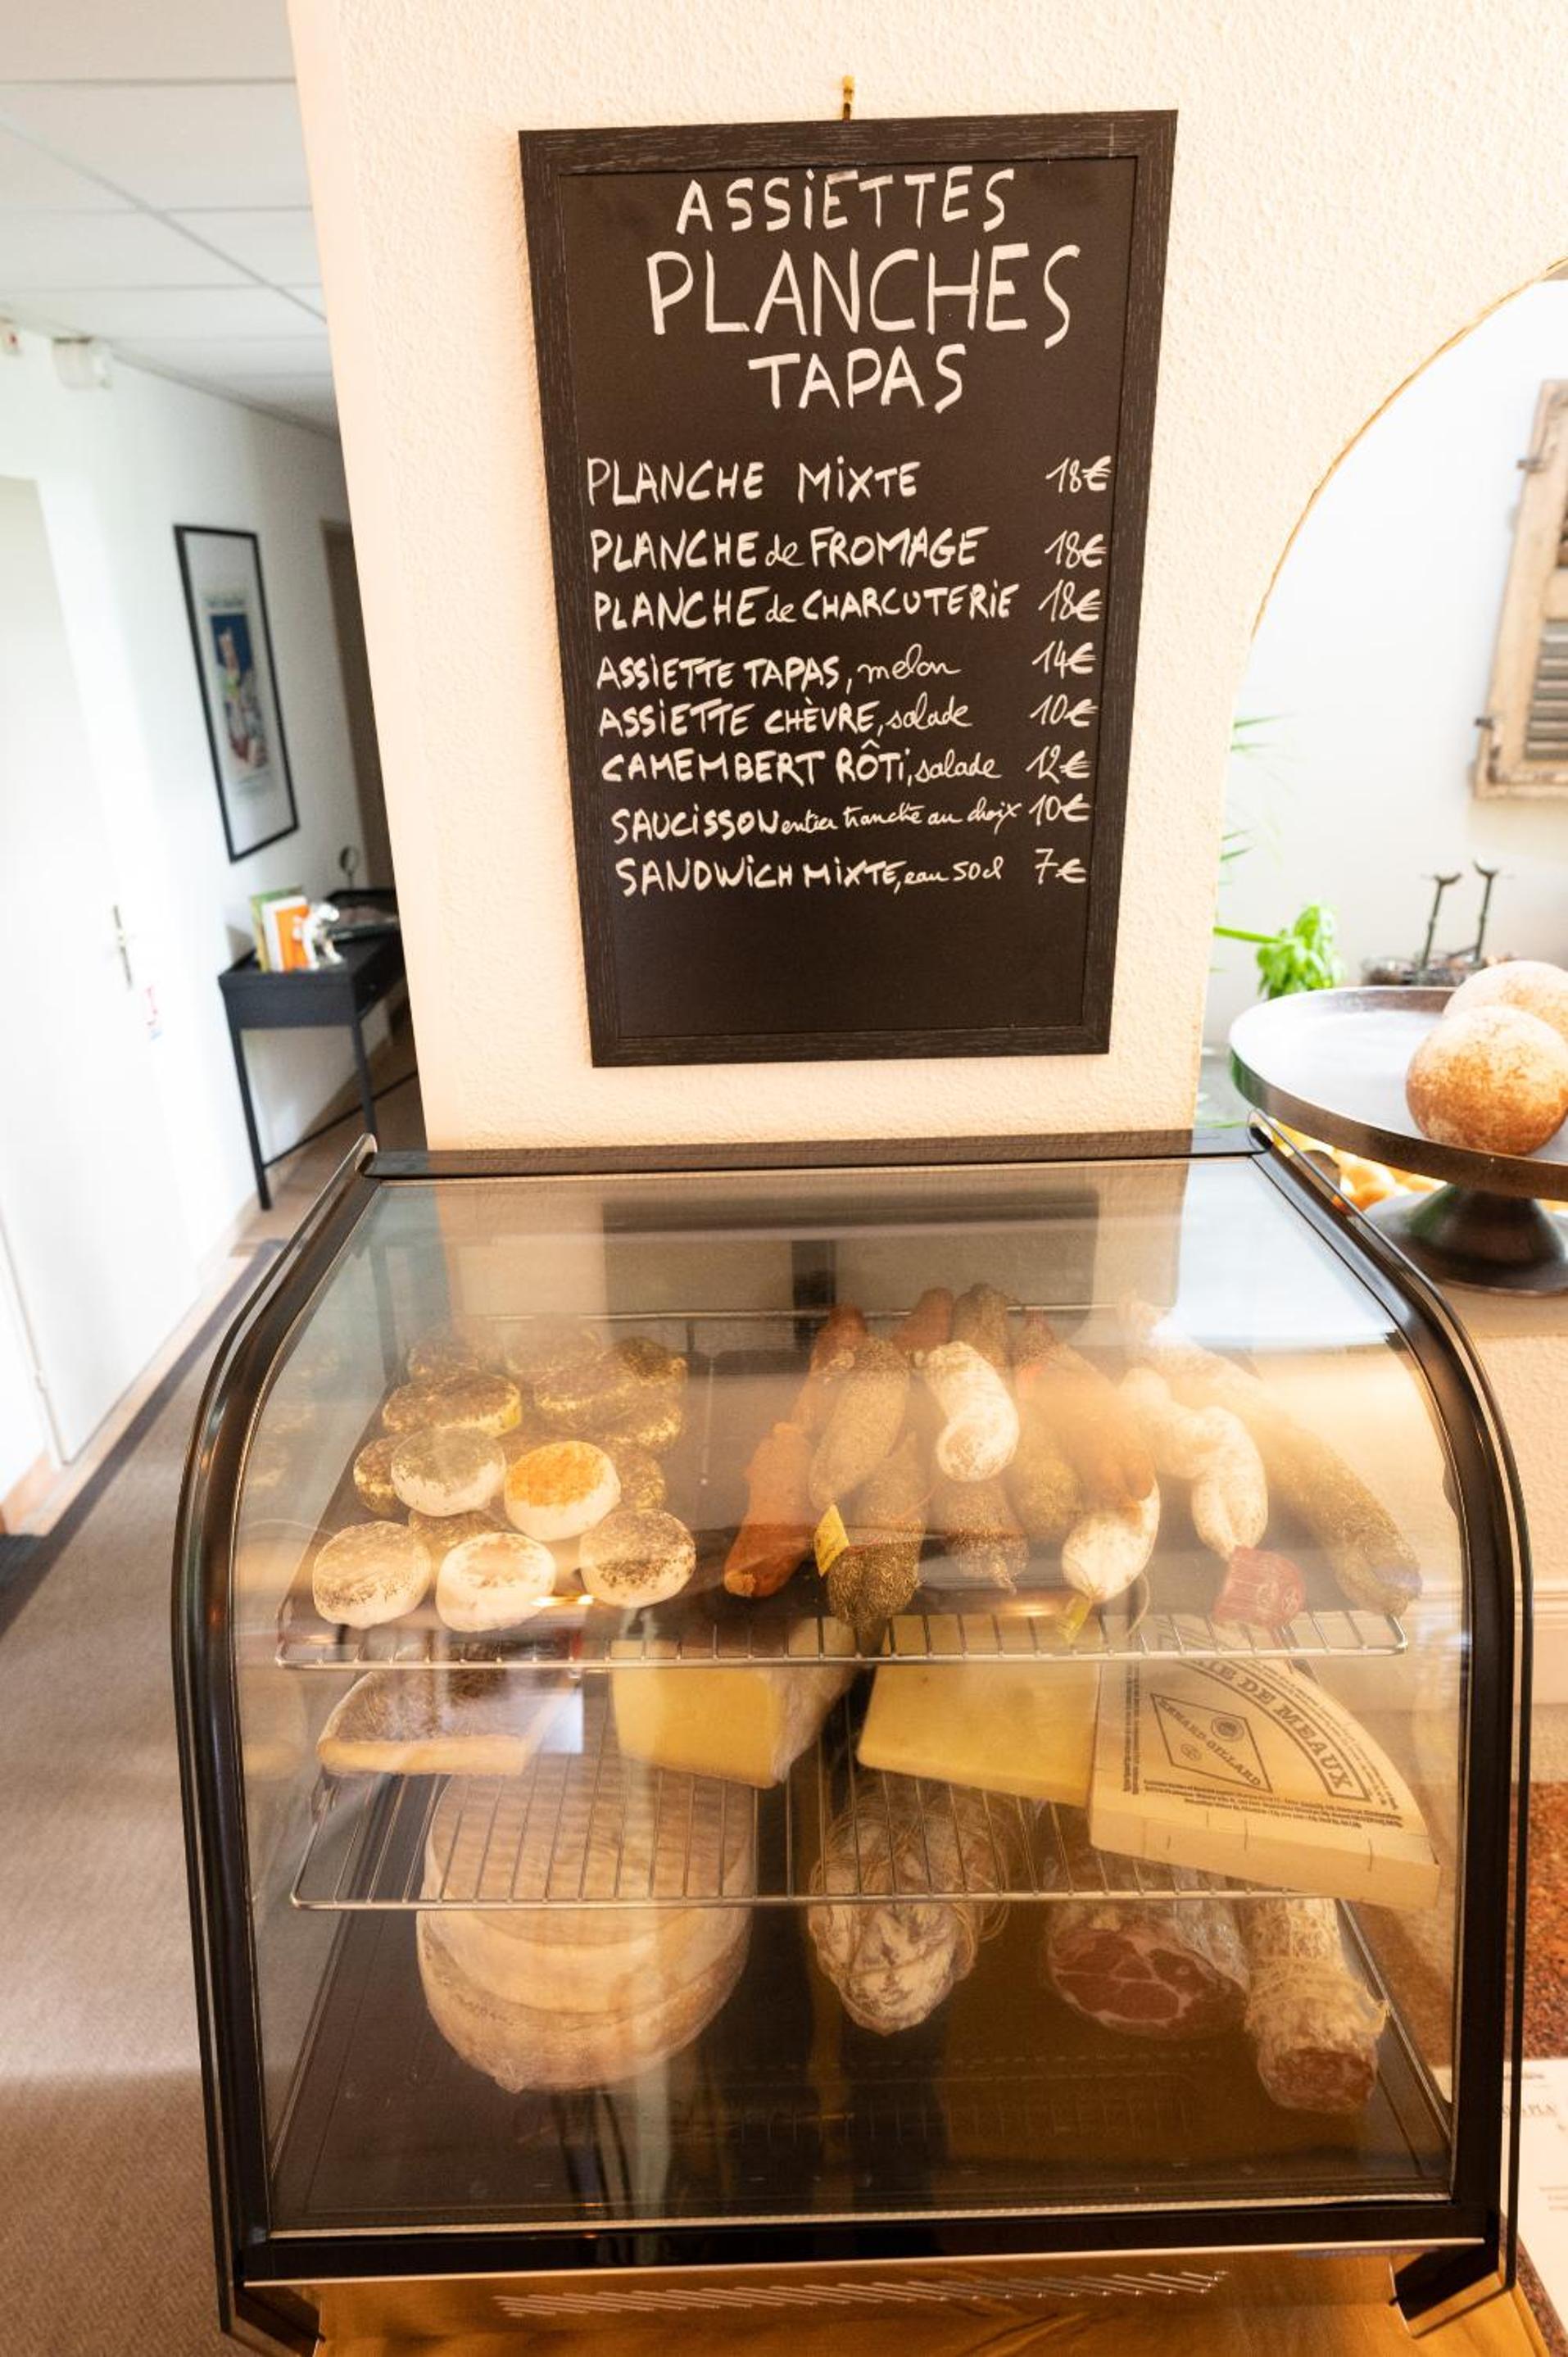 ASSiETTES
PLANCHES
TAPAS
PLANCHE MiXTE 18€
PLANCHE de FROMAGE 18€
PLANCHE de CHARCUTERiE 18€
ASSiETTE TAPAS, melon 14€
ASSiETTE CHÈVRE, salade 10€
CAMEMBERT RÔTi, salade 12€
SAUCiSSON entier tranché au choix 10€
SANDWiCH MiXTE, eau 50cl 7€
DE MEAUX
GILLARD